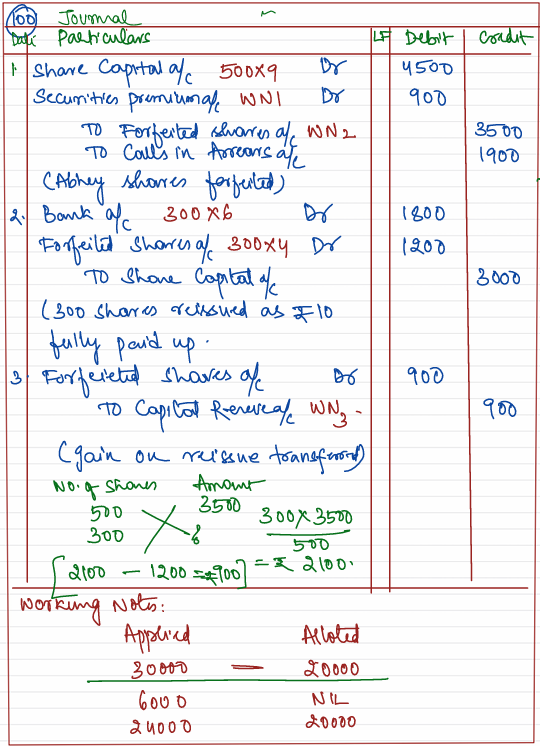 100 Journal
Date Particulars LF Debit Credit
1. Share Capital a/c 500×9 Dr 4500
Securities premium a/c WN1 Dr 900
To Forfeited shares a/c WN2 3500
To Calls in Arrears a/c 1900
(Abhey shares forfeited)
2. Bank a/c 300×6 Dr 1800
Forfeited Shares a/c 300×4 Dr 1200
To Share Capital a/c 3000
(300 shares reissued as ₹10
fully paid up.
3 Forfeieted Shares a/c Dr 900
To Capital Reserve a/c WN3. 900
(gain on reissue transferred)
No. of Shares Amount
500 3500
300 ?
300×3500
500
= ₹ 2100.
[2100 - 1200 = ₹900]
Working Notes:
Applied Alloted
30000 — 20000
6000 NIL
24000 20000